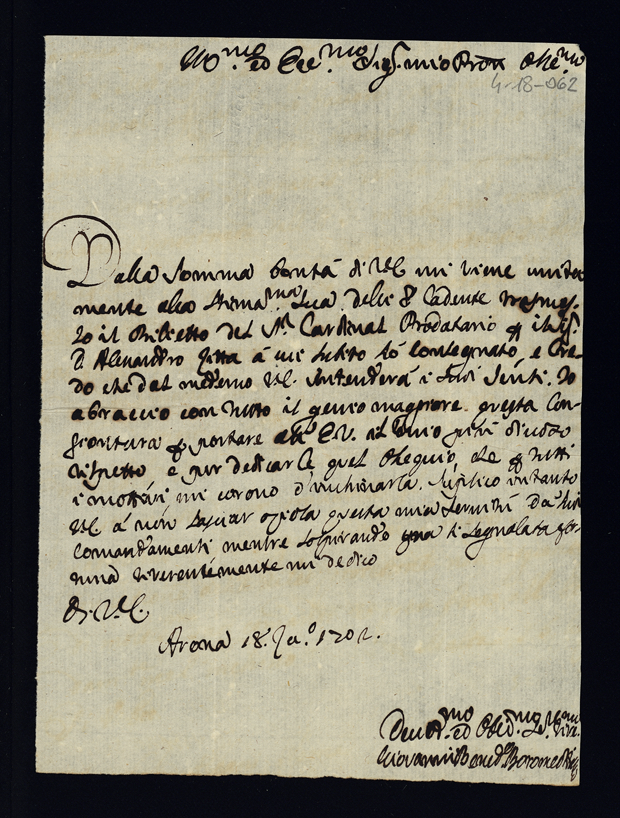 Ill.mo ed Ecc.mo Sig.r mio Pron Oss.mo
4-18-062
Dalla somma bontà di V.E. mi viene unita
mente alla stima.ma sua delli 8 Cadente trasmes-
so il Biglietto del S.r Cardinal Prodatario p il Sig.
D. Alessandro à cui subito l'ò consegnato, e Cre-
do che dal medemo V.E. intenderà i suoi senti. Io
abraccio con tutto il genio maggiore questa Con-
giontura p portare all' E.V. il mio più divoto
rispetto e pur dedicarle quel Ossequio, che p tutti
i mottivi mi corono d'inchinarla. Suplico intanto
V.E. à non lasciar oziosa questa mia servitù da suoi
Comandamenti mentre sospirando una si segnalata for-
tuna riverentemente mi dedico
Di V.E.
Arona 18. 1702.
Devot.mo ed Obed.mo Se.
Giovanni Bened. Boromeo